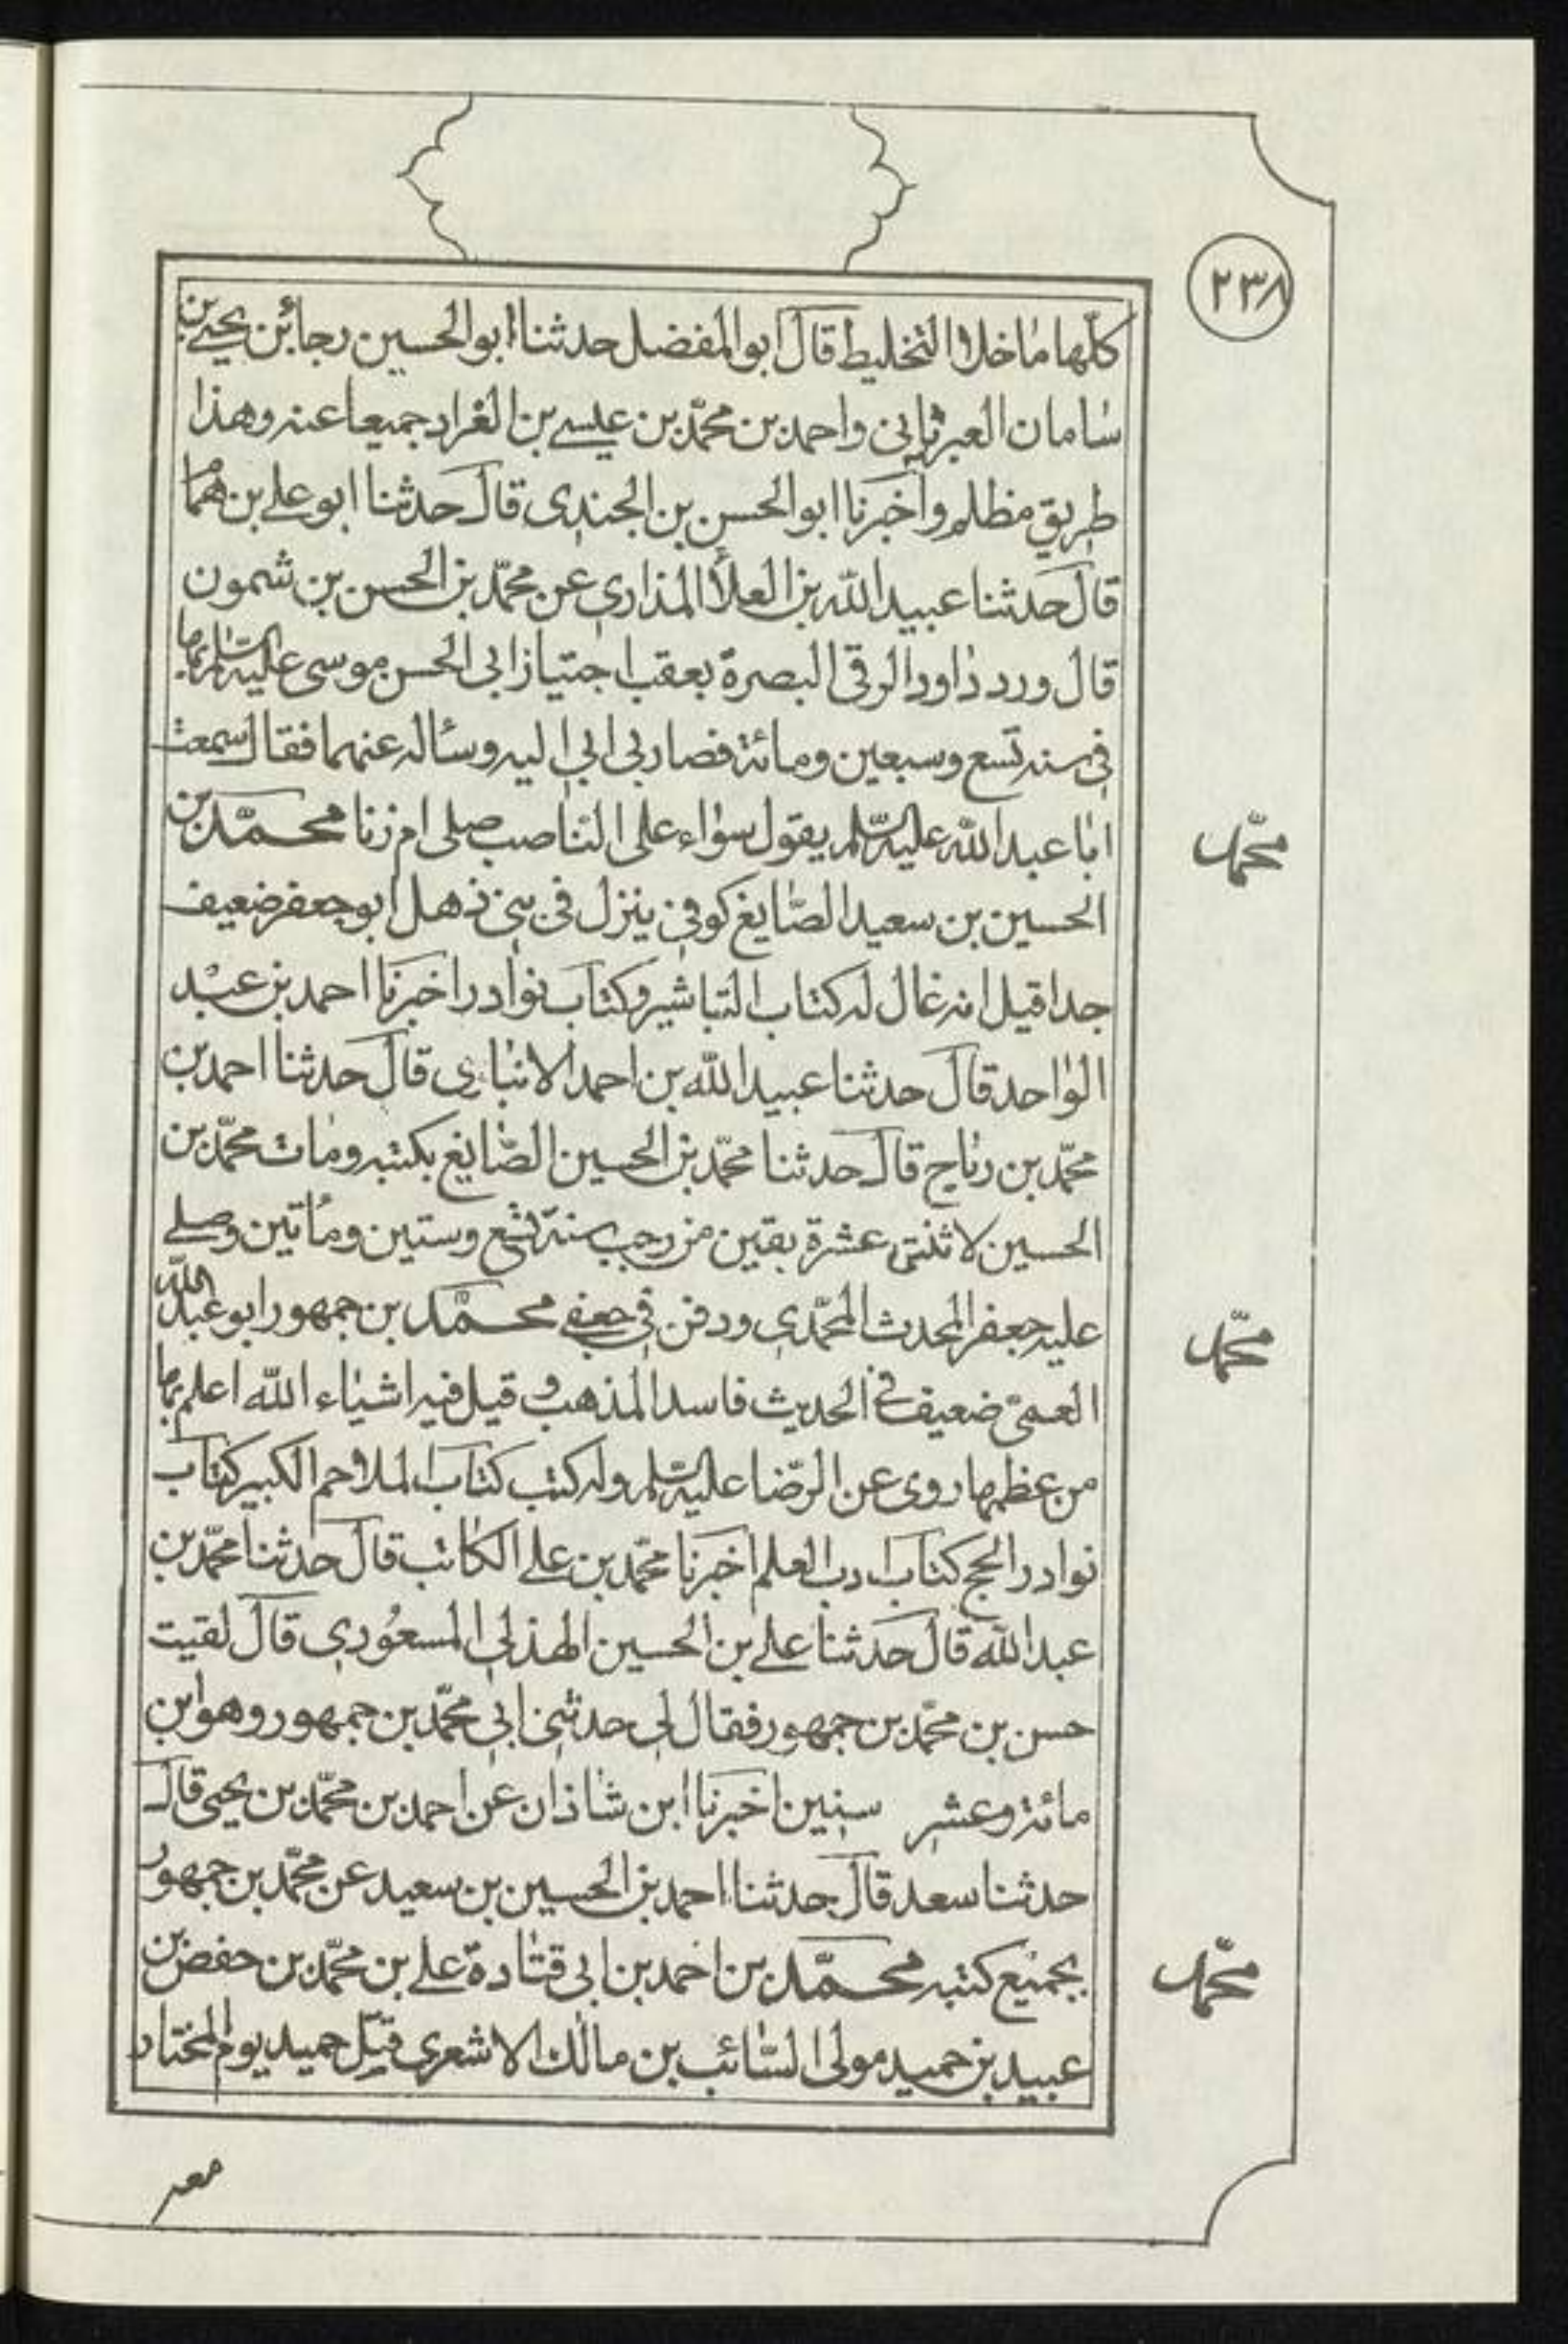 ٢٣٨
كلّها ما خلا التخليط قال ابو المفضل حدثنا ابو الحسين رجائ بن يحيى بن
سامان العبرتائى واحمد بن محمّد بن عيسى بن الغراد جميعا عنه وهذا
طريق مظلم واخبرنا ابو الحسن بن الجندى قال حدثنا ابو على بن همام
قال حدثنا عبيد الله بن العلاء المذارى عن محمّد بن الحسن بن شمون
قال ورد داود الرقى البصرة بعقب اجتياز ابى الحسن موسى عليه السّلم بها
فى سنه تسع وسبعين ومائة فصار بى ابى اليه وساله عنهما فقال سمعت
ابا عبد الله عليه السّلم يقول سواء على الناصب صلى ام زنا محمّد بن
محمّد
الحسين بن سعيد الصّايغ كوفى ينزل فى بنى ذهل ابو جعفر ضعيف
جدا قيل انه غال له كتاب التباشير وكتاب نوادر اخبرنا احمد بن عبد
الواحد قال حدثنا عبيد الله بن احمد الانبارى قال حدثنا احمد بن
محمّد بن رباح قال حدثنا محمّد بن الحسين الصّايغ بكتبه ومات محمّد بن
الحسين لاثنتى عشرة بقين من رجب سنة تسع وستين ومأتين وصلى
عليه جعفر المحدث المحمّدى ودفن فى جعفى محمّد بن جمهور ابو عبد الله
محمّد
العمىّ ضعيف فى الحديث فاسد المذهب و قيل فيه اشياء الله اعلم بها
من عظمها روى عن الرّضا عليه السّلم وله كتب كتاب الملاحم الكبير كتاب
نوادر الحج كتاب ادب العلم اخبرنا محمّد بن على الكاتب قال حدثنا محمّد بن
عبد الله قال حدثنا على بن الحسين الهذلى المسعودى قال لقيت
حسن بن محمّد بن جمهور فقال لى حدثنى ابى محمّد بن جمهور وهو ابن
مائة وعشر سنين اخبرنا ابن شاذان عن احمد بن محمّد بن يحيى قال
حدثنا سعد قال حدثنا احمد بن الحسين بن سعيد عن محمّد بن جمهور
بجميع كتبه محمّد بن احمد بن ابى قتادة على بن محمّد بن حفص بن
محمّد
عبيد بن حميد مولى السّائب بن مالك الاشعرى قتل حميد يوم المختار
معه